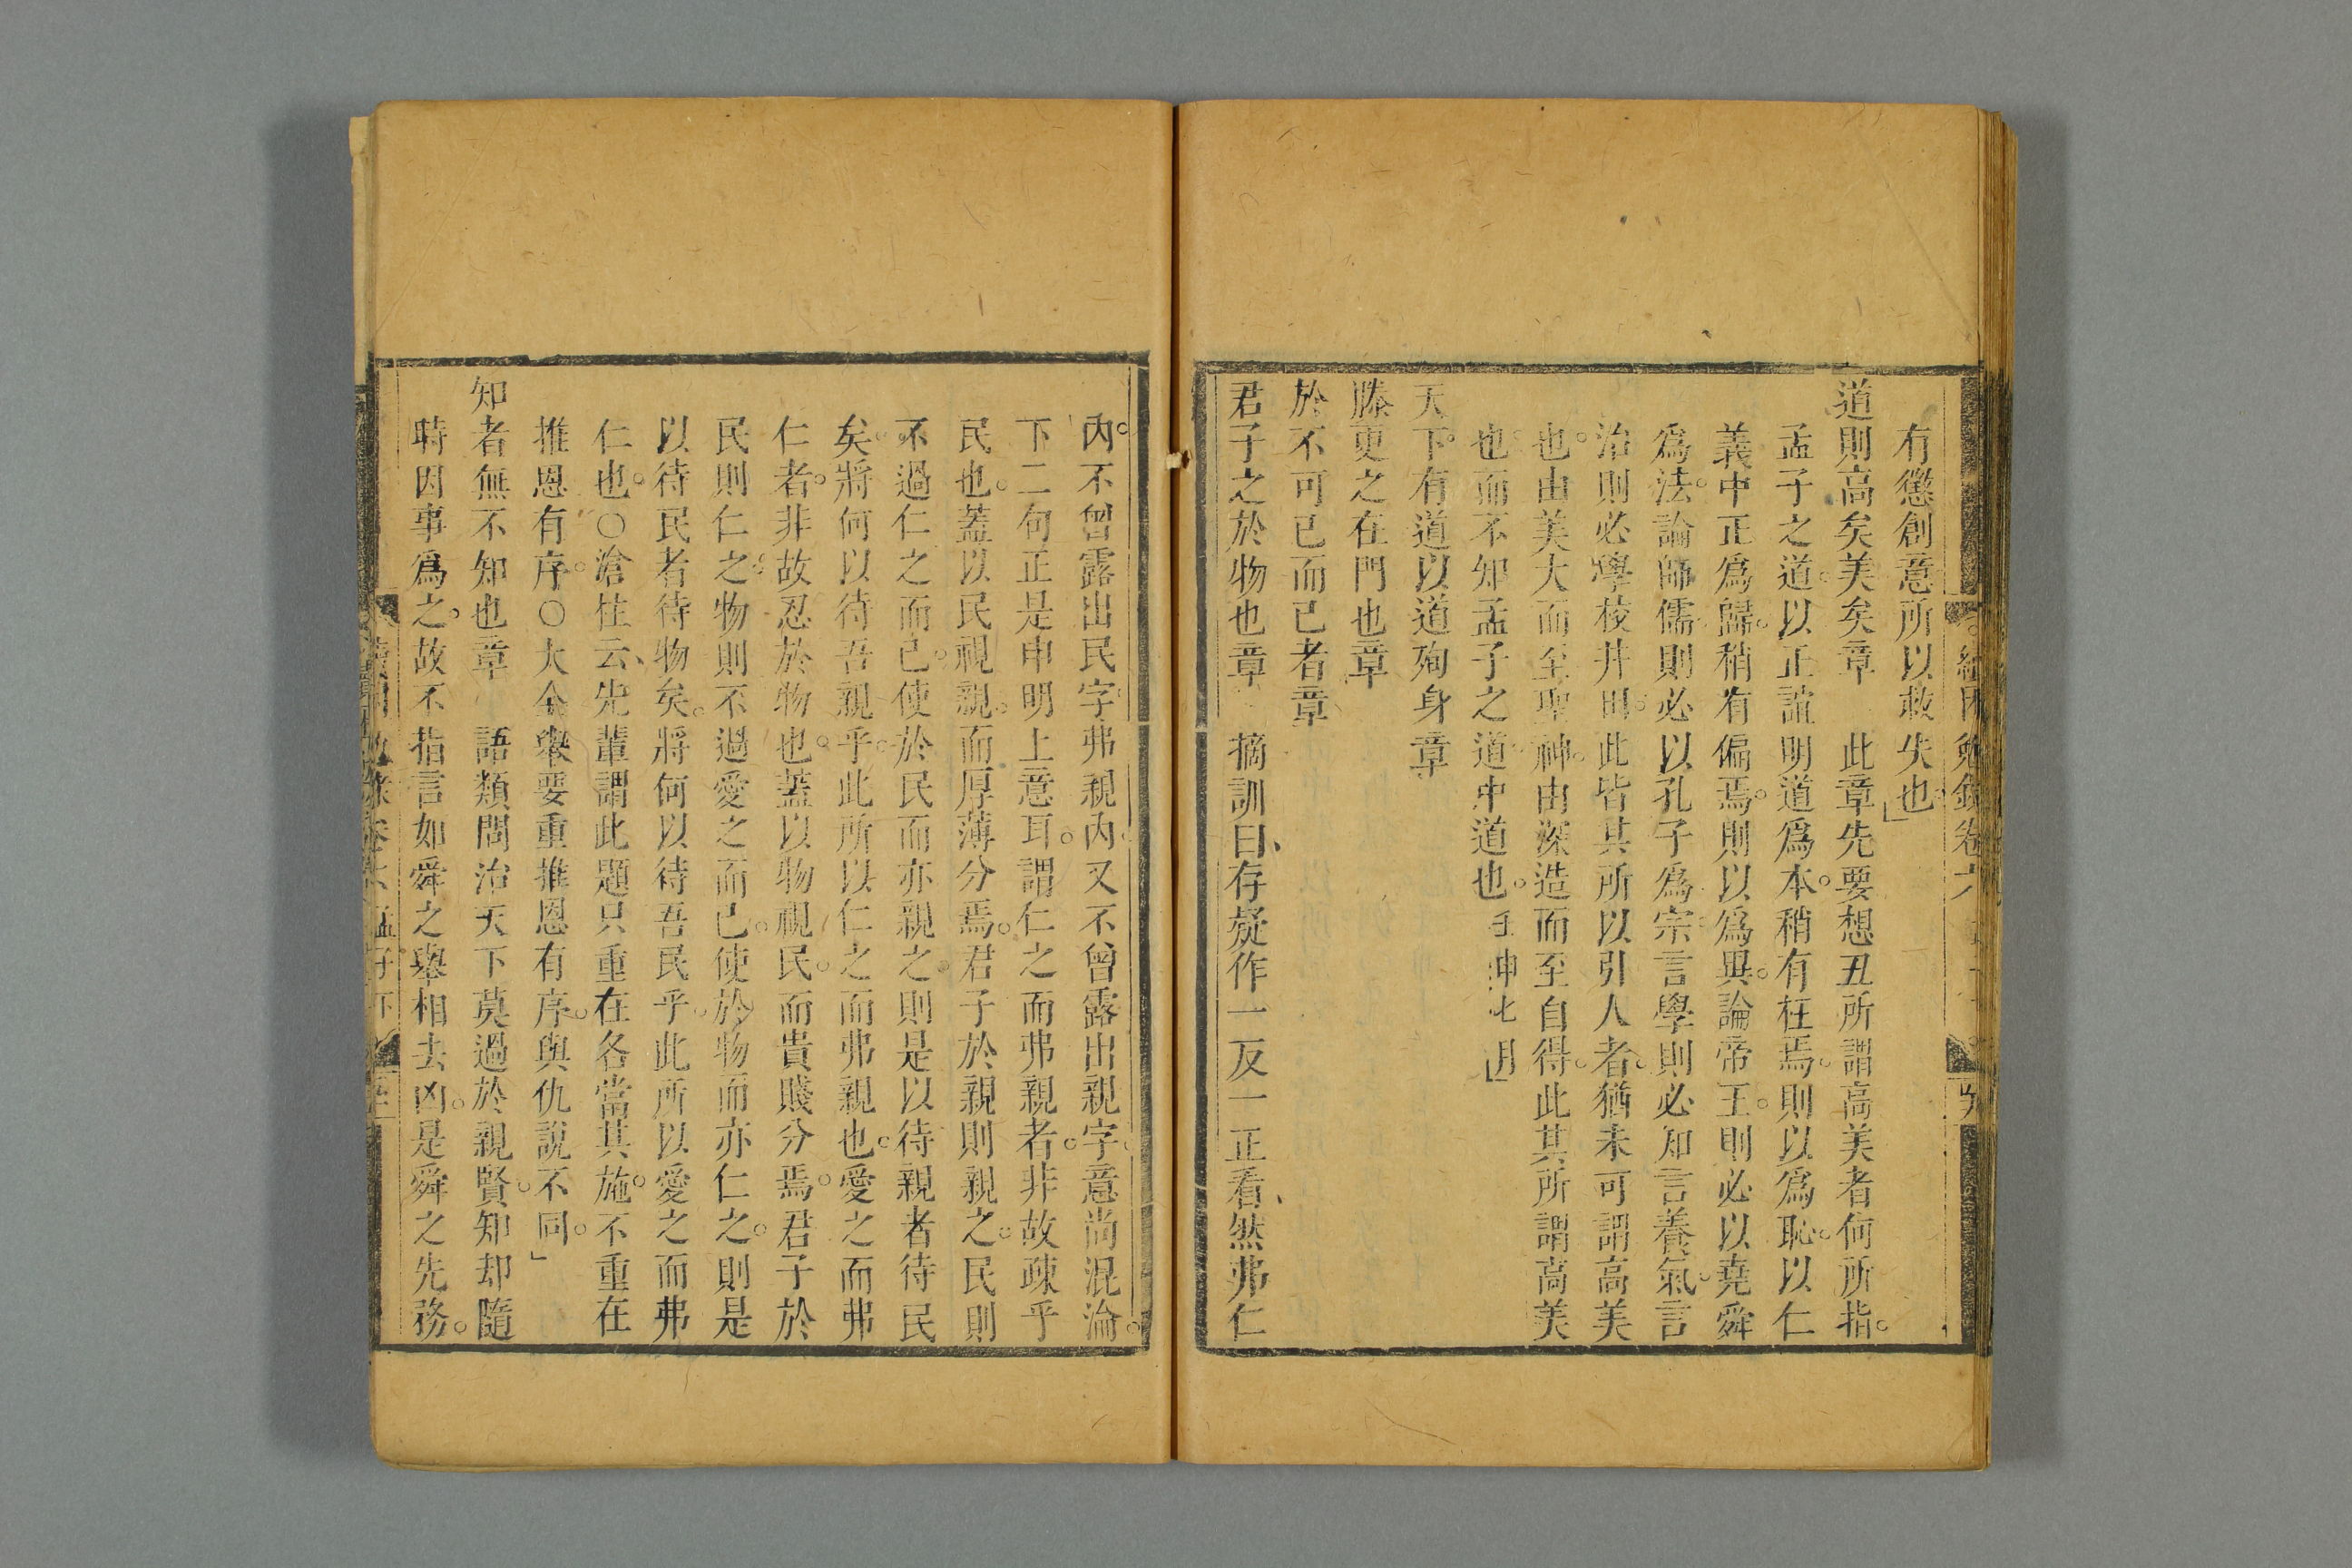 有懲創意所以救失也
道則高矣美矣章　此章先要想丑所謂高美者何所指
孟子之道以正誼明道爲本稍有枉焉則以爲恥以仁
義中正爲歸稍有偏焉則以爲異論帝王則必以堯舜
爲法論師儒則必以孔子爲宗言學則必知言養氣言
治則必學校井田此皆其所以引人者猶未可謂高美
也由美大而至聖神由深造而至自得此其所謂高美
也而不知孟子之道中道也
天下有道以道殉身章
滕更之在門也章
於不可已而已者章
君子之於物也章　摘訓曰存疑作一反一正看然弗仁
內不曾露出民字弗親內又不曾露出親字意尚混淪
下二句正是申明上意耳謂仁之而弗親者非故疎乎
民也蓋以民視親而厚薄分焉君子於親則親之民則
不過仁之而已使於民而亦親之則是以待親者待民
矣將何以待吾親乎此所以仁之而弗親也愛之而弗
仁者非故忍於物也蓋以物視民而貴賤分焉君子於
民則仁之物則不過愛之而已使於物而亦仁之則是
以待民者待物矣將何以待吾民乎此所以愛之而弗
仁也○滄柱云先輩謂此題只重在各當其施不重在
推恩有序○大全舉要重推恩有序與仇說不同
知者無不知也章　語類問治天下莫過於親賢知却隨
時因事爲之故不指言如舜之舉相去凶是舜之先務